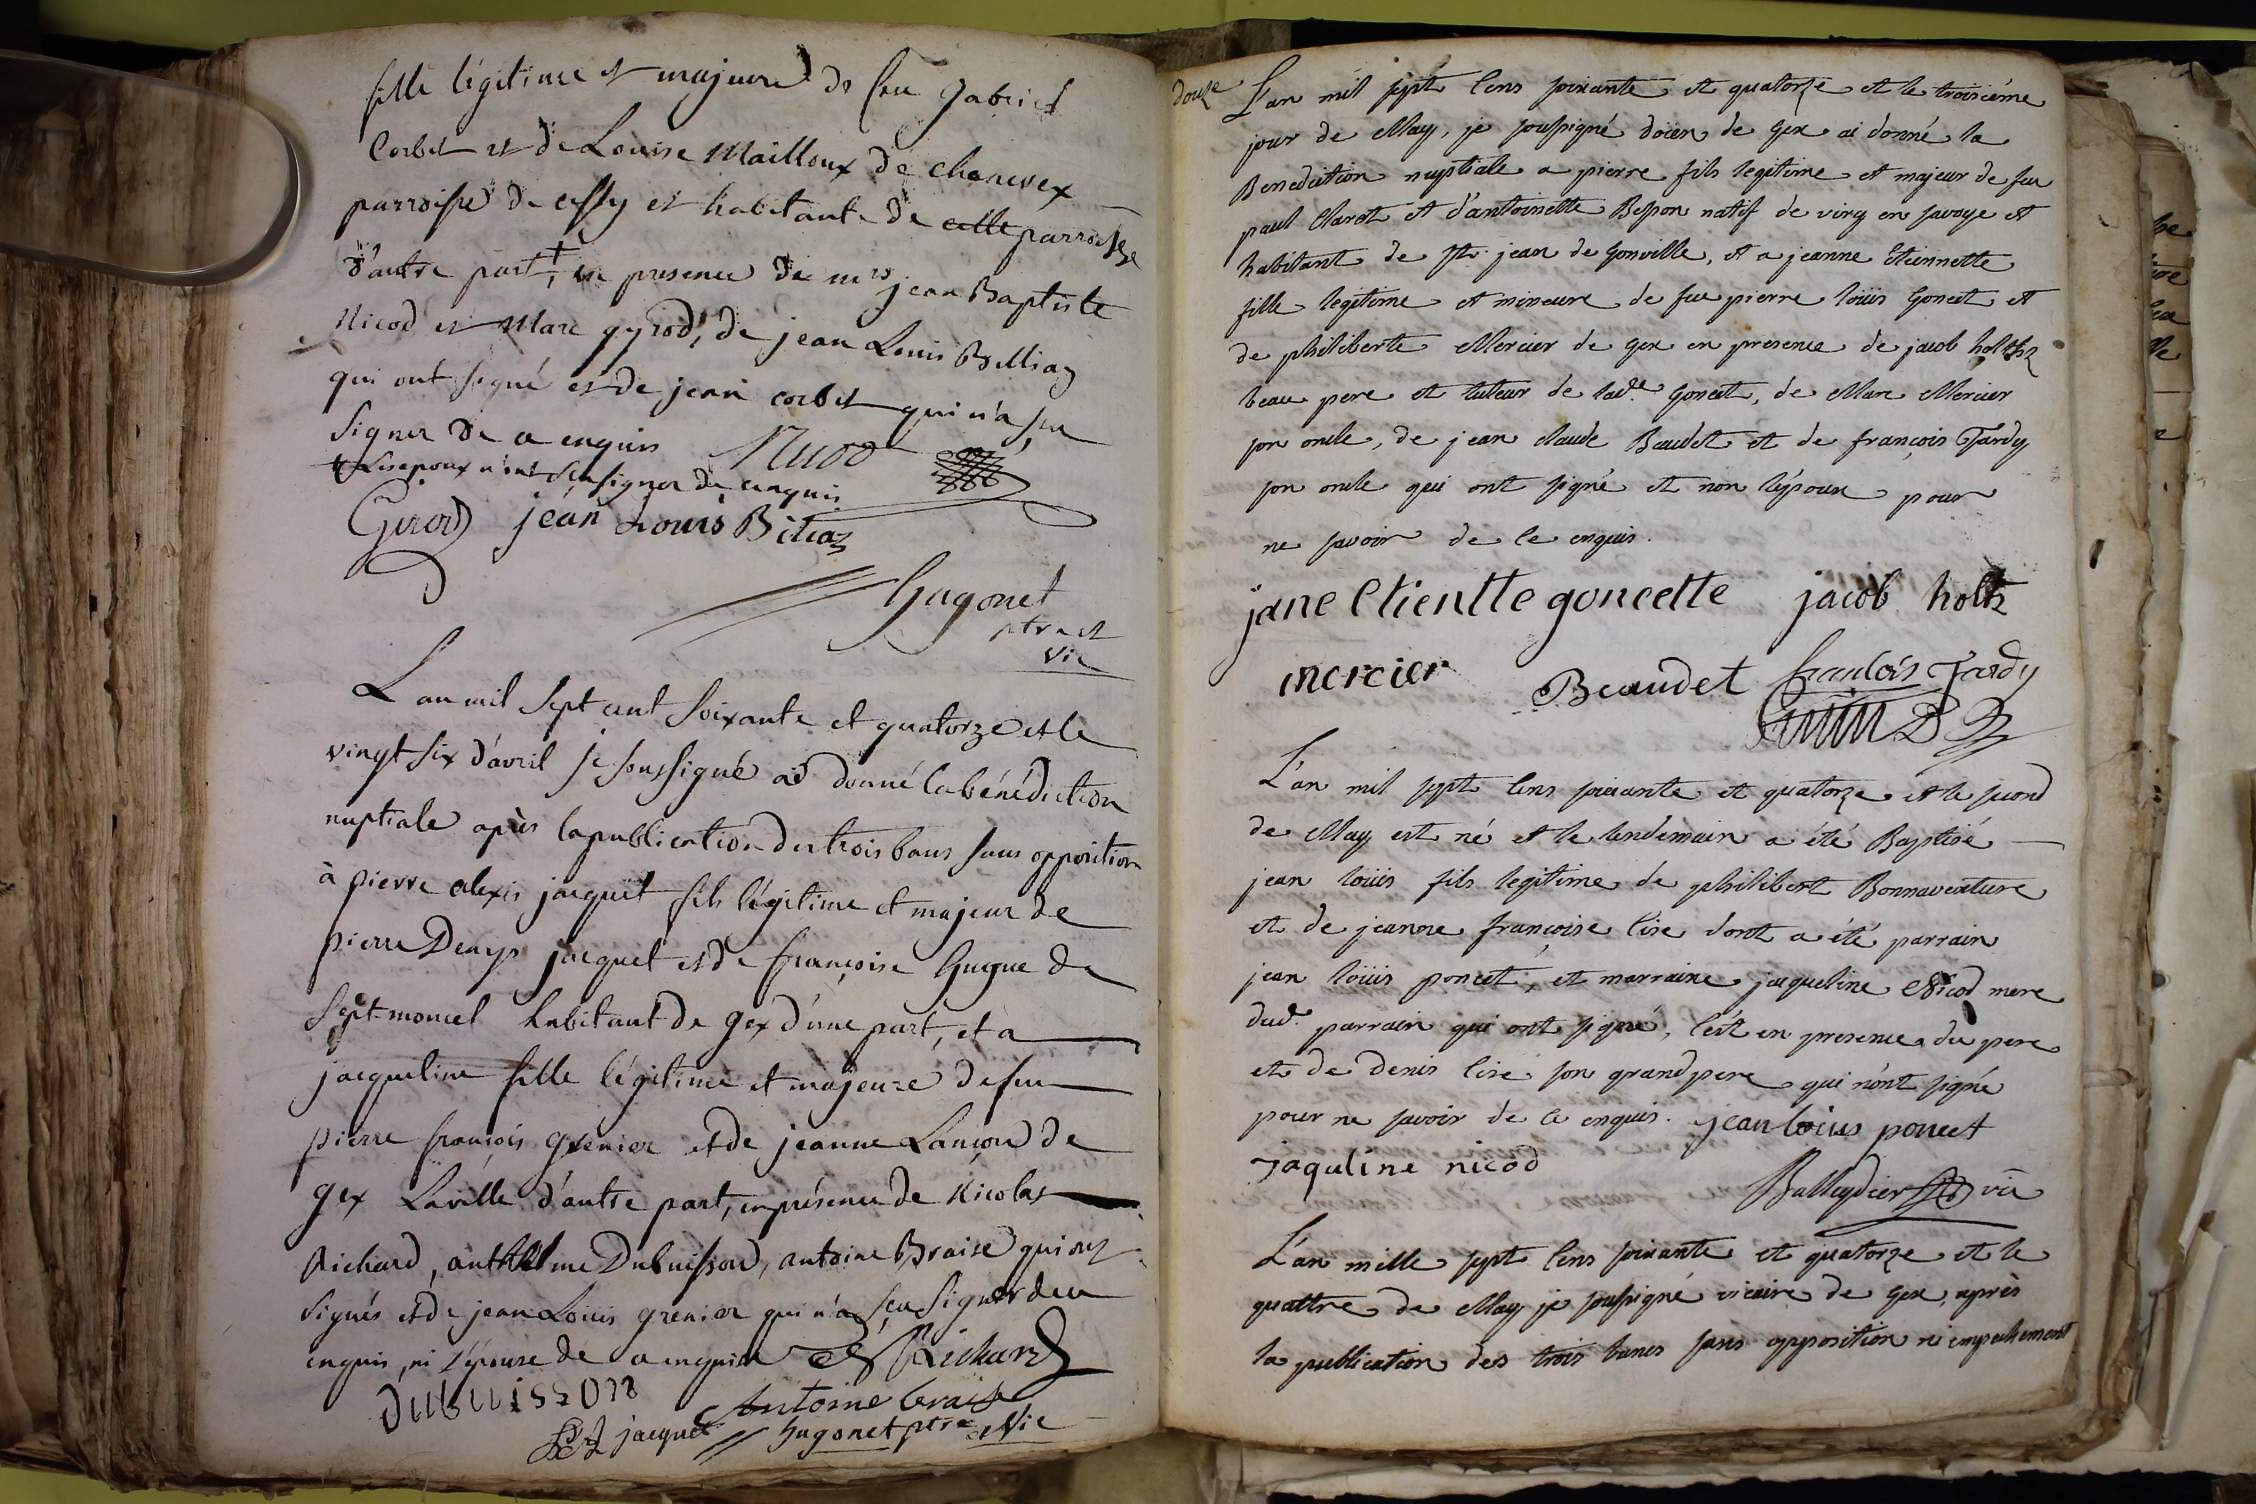 fille légitime et majeure de feu gabriel
Corbet et de Louise Mailloux de chenevex
parroisse de cessy et habitante de cette parroisse
d'autre part, + en presence de mrs jean Baptiste
Nicod et Marc gyrod, de jean Louis Billiaz
qui ont signé et de jean corbet qui n'a su
signer de ce enquis Nicod
+ Les epoux n'ont seu signer de ce enquis
Girod jean Louis Biliaz
hugonet
ptre et
vic
L'an mil sept cent soixante et quatorze et le
vingt six d'avril je soussigné ai donné la bénédiction
nuptiale après la publication des trois bans sans opposition
à pierre alexis jacquet fils légitime et majeur de
pierre Denys jacquet et de françoise hugue de
Septmoncel habitant de gex d'une part, et à
jacqueline fille légitime et majeure de feu
pierre françois grenier et de jeanne Lançon de
gex La ville d'autre part, en présence de Nicolas
Richard, anthelme Dubuisson, antoine Braise qui ont
signés et de jean Louis grenier qui n'a sçeu signer de ce
enquis, ni l'épouse de ce enquise Richard
dubuisson
Antoine braise
jacquet hugonet ptre et Vic
douze L'an mil sept cens soixante et quatorze et le troisième
jour de May, je soussigné doien de Gex ai donné la
Benediction nuptiale a pierre fils legitime et majeur de feu
paul Claret et d'antoinette Besson natif de viry en savoye et
habitant de St. jean de Gonville, et a jeanne Etiennette
fille legitime et mineure de feu pierre loüis Goncet et
de philiberte Mercier de Gex en presence de jacob holtz
beau pere et tuteur de lade. Goncet, de Marc Mercier
son oncle, de jean claude Beaudet et de françois Tardy
son oncle qui ont signé et non l'époux pour
ne savoir de ce enquis.
jane Etientte goncette jacob holtz
mercier Beaudet francois Tardy
L'an mil sept cens soixante et quatorze et le second
de May est né et le lendemain a été Baptisé
jean loüis fils legitime de philibert Bonnaventure
et de jeanne françoise lire dont a été parrain
jean loüis poncet, et marraine jaqueline Nicod mere
dud. parrain qui ont signé, c'est en presence du pere
et de denis lire son grandpere qui n'ont signé
pour ne savoir de ce enquis. jean loius poncet
jaquline nicod
Balleydier vic
L'an mille sept cens soixante et quatorze et le
quattre de May je soussigné vicaire de Gex après
la publication des trois bancs sans opposition ni empechement